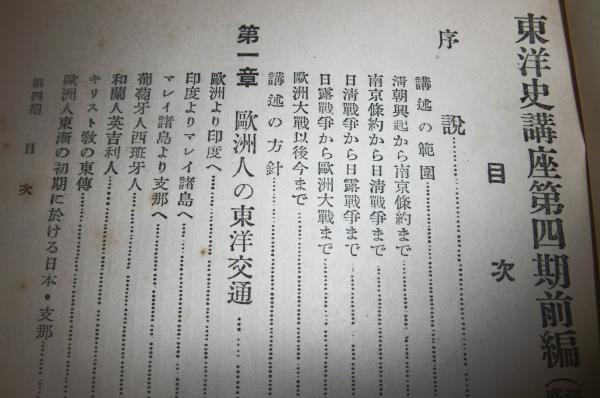 東洋史講座第四期前編（
目次
序說
講述の範圍
淸朝興起から南京條約まで
南京條約から日淸戰爭まで
日淸戰爭から日露戰爭まで
日露戰爭から歐洲大戰まで
歐洲大戰以後今まで
講述の方針
第一章 歐洲人の東洋交通
歐洲より印度へ
印度よりマレイ諸島へ
マレイ諸島より支那へ
葡萄牙人西班牙人
和蘭人英吉利人
キリスト敎の東傳
歐洲人東漸の初期に於ける日本・支那
第四期 目次